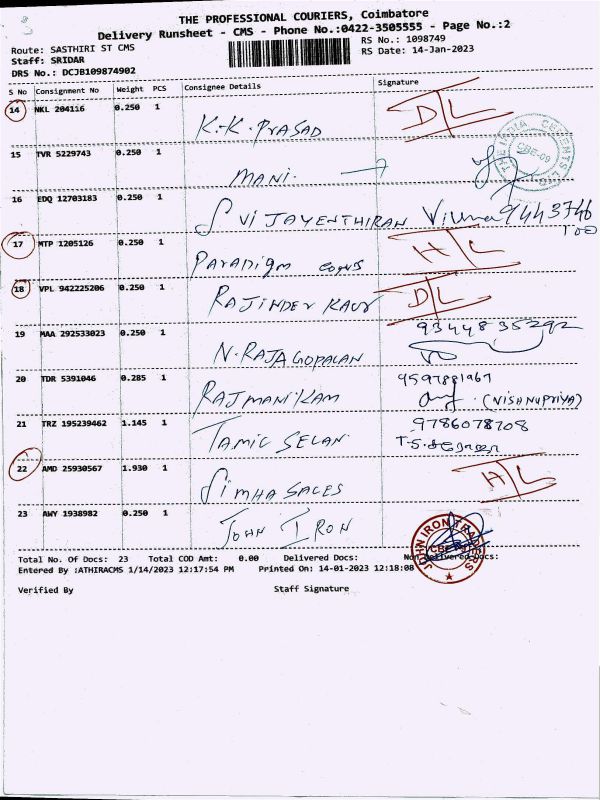 THE PROFESSIONAL COURIERS, Coimbatore
Delivery Runsheet - CMS - Phone No.:0422-3505555 - Page No.:2
Route: SASTHIRI ST CMS
RS No.: 1098749
Staff: SRIDAR
RS Date: 14-Jan-2023
DRS No.: DCJB109874902
S No Consignment No Weight PCS Consignee Details Signature
14 NKL 204116 0.250 1 K.K. PRASAD D/L
15 TVR 5229743 0.250 1 MANI.
THE INDIA CEMENTS LTD CBE-09
16 EDQ 12703183 0.250 1 S VIJAYENTHIRAN 9443746
17 MTP 1205126 0.250 1 Paradigm H/L
18 VPL 942225206 0.250 1 RAJINDER KAUR D/L
19 MAA 292533023 0.250 1 N. RAJAGOPALAN 9344835292
20 TDR 5391046 0.285 1 RAJMANIKAM 9597881967
(VISHNUPRIYA)
21 TRZ 195239462 1.145 1 TAMIL SELAN 9786078708
22 AMD 25930567 1.930 1 SIMHA SALES H/L
23 AWY 1938982 0.250 1 JOHN IRON
JOHN IRON TRADERS
Total No. Of Docs: 23 Total COD Amt: 0.00 Delivered Docs: Non Delivered Docs:
Entered By :ATHIRACMS 1/14/2023 12:17:54 PM Printed On: 14-01-2023 12:18:08
Verified By Staff Signature